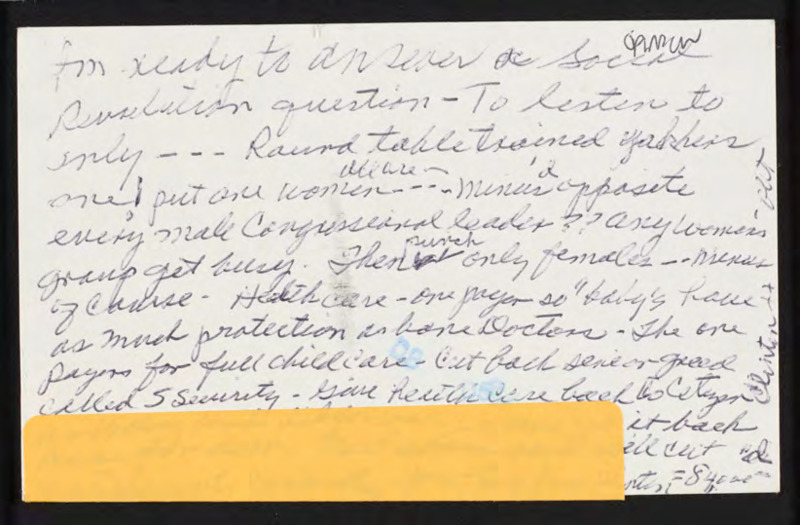 I'm ready to answer a Social
Revolution question - To listen to
only - - - Round table trained yakkers
one! put one women - - - - minus opposite
every male Congressional leader ?? any women's
group get busy. Then only females - - minus
of course - Health care - one payer so "baby's have
as much protection as bone Doctors - The one
payers for full child care - Cut back senior greed
called S Security - Give health care back to
it back
ill cut